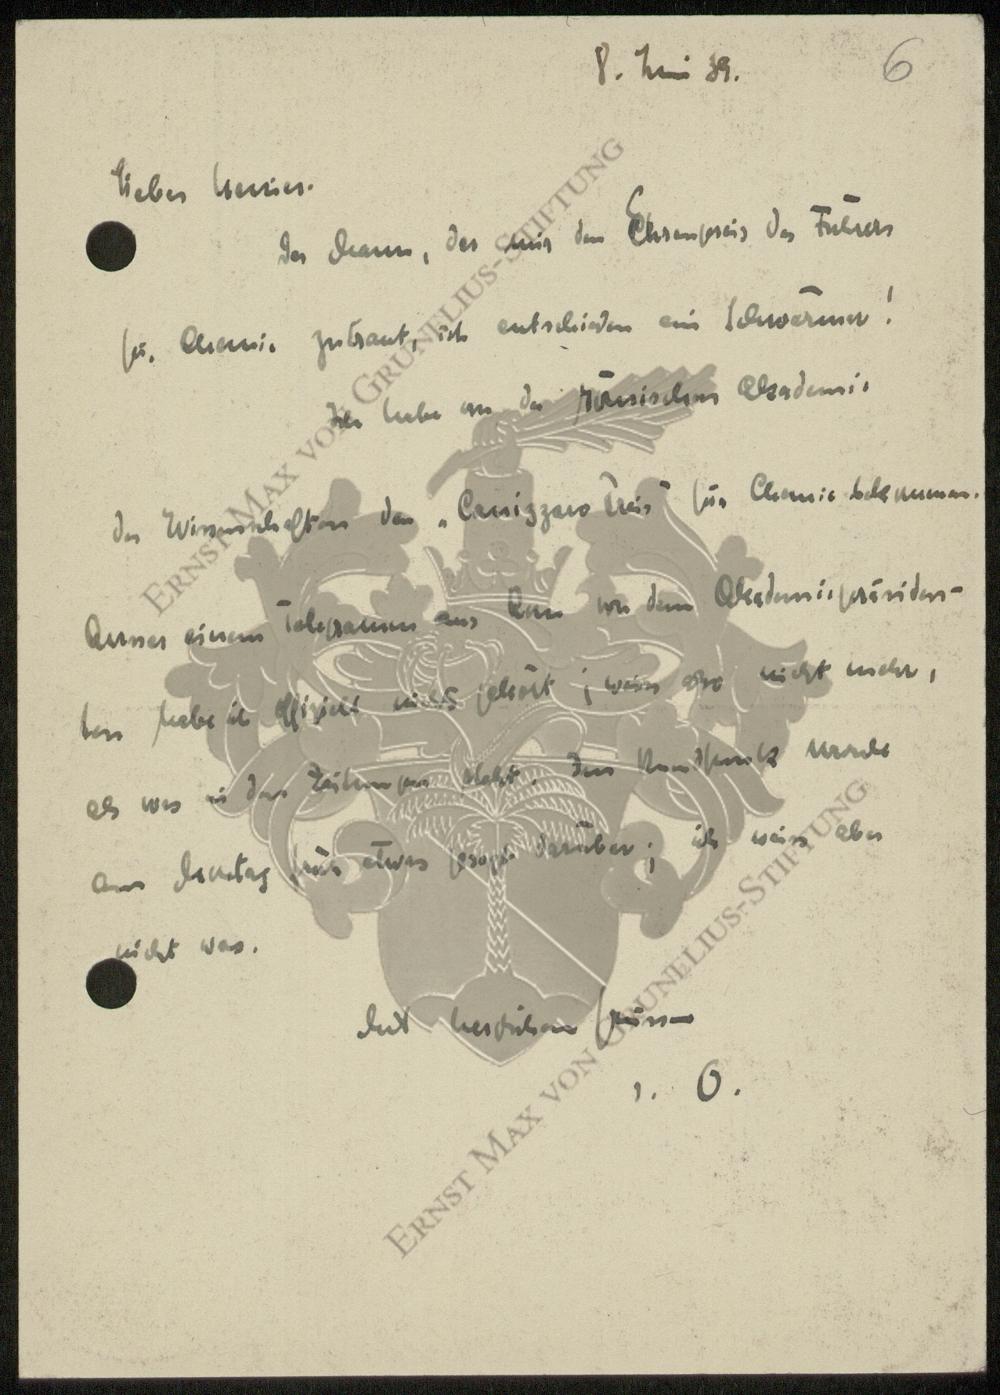 8. Juni 39.
6
Lieber Werner.
Der Mann, der mir den Ehrenpreis des Führers
für Chemie zutraut, ist entschieden ein Schwärmer!
Ich habe von der römischen Akademie
der Wissenschaften den „Canizzaro Preis" für Chemie bekommen.
Ausser einem Telegramm aus Rom von dem Akademiepräsiden-
ten habe ich offiziell nichts gehört; weiss also nicht mehr,
als was in den Zeitungen steht. Im Rundfunk wurde
am Montag früh etwas gesagt darüber; ich weiss aber
nicht was.
Mit herzlichen Grüssen
O.
ERNST MAX VON GRUNELIUS-STIFTUNG
ERNST MAX VON GRUNELIUS-STIFTUNG